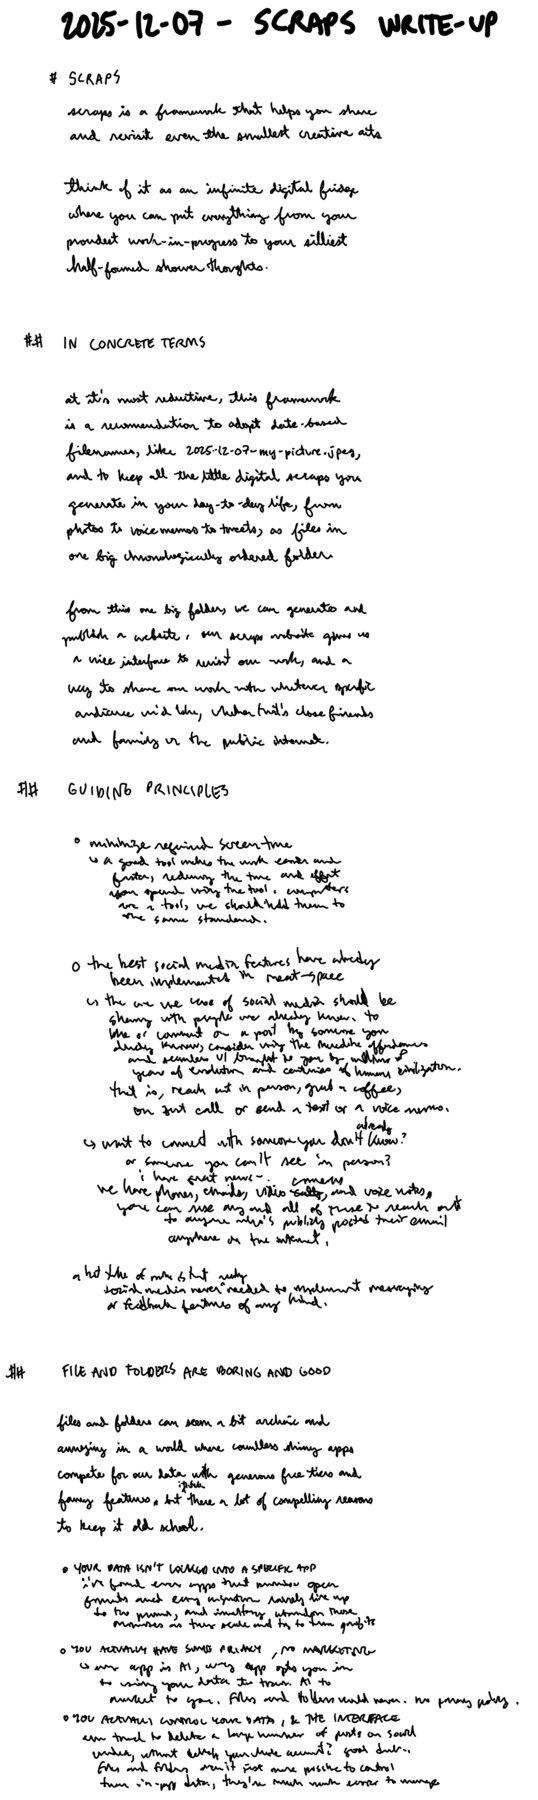 2025-12-07 - SCRAPS WRITE-UP
# SCRAPS
scraps is a framework that helps you share
and revisit even the smallest creative acts
think of it as an infinite digital fridge
where you can put everything from your
proudest work-in-progress to your silliest
half-formed shower thoughts.
## IN CONCRETE TERMS
at it's most reductive, this framework
is a recommendation to adopt date-based
filenames, like 2025-12-07-my-picture.jpeg,
and to keep all the little digital scraps you
generate in your day-to-day life, from
photos to voice memos to tweets, as files in
one big chronologically ordered folder.
from this one big folder, we can generate and
publish a website. our scraps website gives us
a nice interface to revisit our work, and a
way to share our work with whatever specific
audience we'd like, whether that's close friends
and family or the public internet.
## GUIDING PRINCIPLES
minimize required screen time
↳ a good tool makes the work easier and
faster, reducing the time and effort
you spend using the tool. computers
are a tool, we should hold them to
the same standard.
the best social media features have already
been implemented in meat-space
↳ the use case of social media should be
sharing with people we already know. to
like or comment on a post by someone you
already know, consider using the affordances
and seamless UI brought to you by millions of
years of evolution and centuries of human civilization.
that is, reach out in person, grab a coffee,
or just call or send a text or a voice memo.
↳ want to connect with someone you don't already know?
or someone you can't see in person?
i have great news-
we have phones, emails, video and voice notes,
you can use any and all of these to reach out
to anyone who's publicly posted their email
anywhere on the internet.
social media never needed to implement messaging
or feedback features of any kind.
## FILE AND FOLDERS ARE BORING AND GOOD
files and folders can seem a bit archaic and
annoying in a world where countless shiny apps
compete for our data with generous free tiers and
fancy features, but there a lot of compelling reasons
to keep it old school.
YOUR DATA ISN'T LOCKED INTO A SPECIFIC APP
i've found even apps that open
formats and easy migration rarely live up
to the promise, and abandon those
promises as they scale and try to turn profits
YOU ACTUALLY HAVE SOME PRIVACY, NO MARKETING
↳ every app is AI, every app opts you in
to using your data to train AI to
market to you. Files and folders would never. no privacy policy.
YOU ACTUALLY CONTROL YOUR DATA, & THE INTERFACE
ever tried to delete a large number of posts on social
media, without your whole account? good luck.
Files and folders aren't just more possible to control
than in-app data, they're much much easier to manage